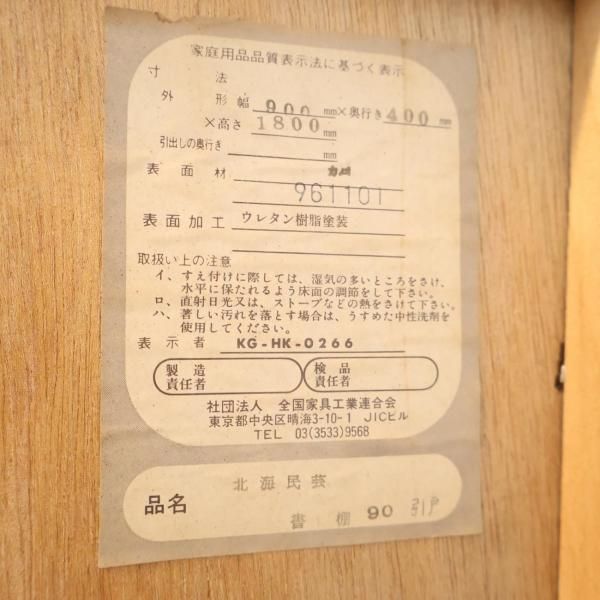 家庭用品品質表示法に基づく表示
寸法
外形 幅 900 mm×奥行き 400 mm
×高さ 1800 mm
引出しの奥行き mm
表面材 カバ
961101
表面加工 ウレタン樹脂塗装
取扱い上の注意
イ、すえ付けに際しては、湿気の多いところをさけ、
水平に保たれるよう床面の調節をして下さい。
ロ、直射日光又は、ストーブなどの熱をさけて下さい。
ハ、著しい汚れを落とす場合は、うすめた中性洗剤を
使用してください。
表示者 KG-HK-0266
製造 検品
責任者 責任者
社団法人 全国家具工業連合会
東京都中央区晴海3-10-1 JICビル
TEL 03(3533)9568
北海民芸
品名
書棚 90 引戸